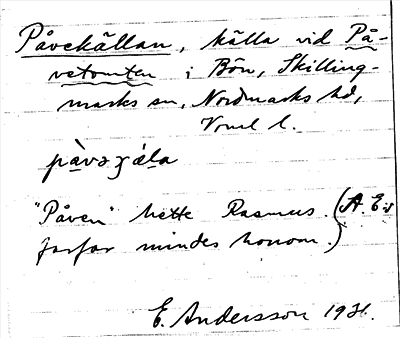 Påvekällan, källa vid På-
vetomten i Bön, Skilling-
marks sn, Nordmarks hd,
Vrml l.
pàvəʒ́äla
"Påven" hette Rasmus. (A. E:s
farfar mindes honom.)
E. Andersson 1931.